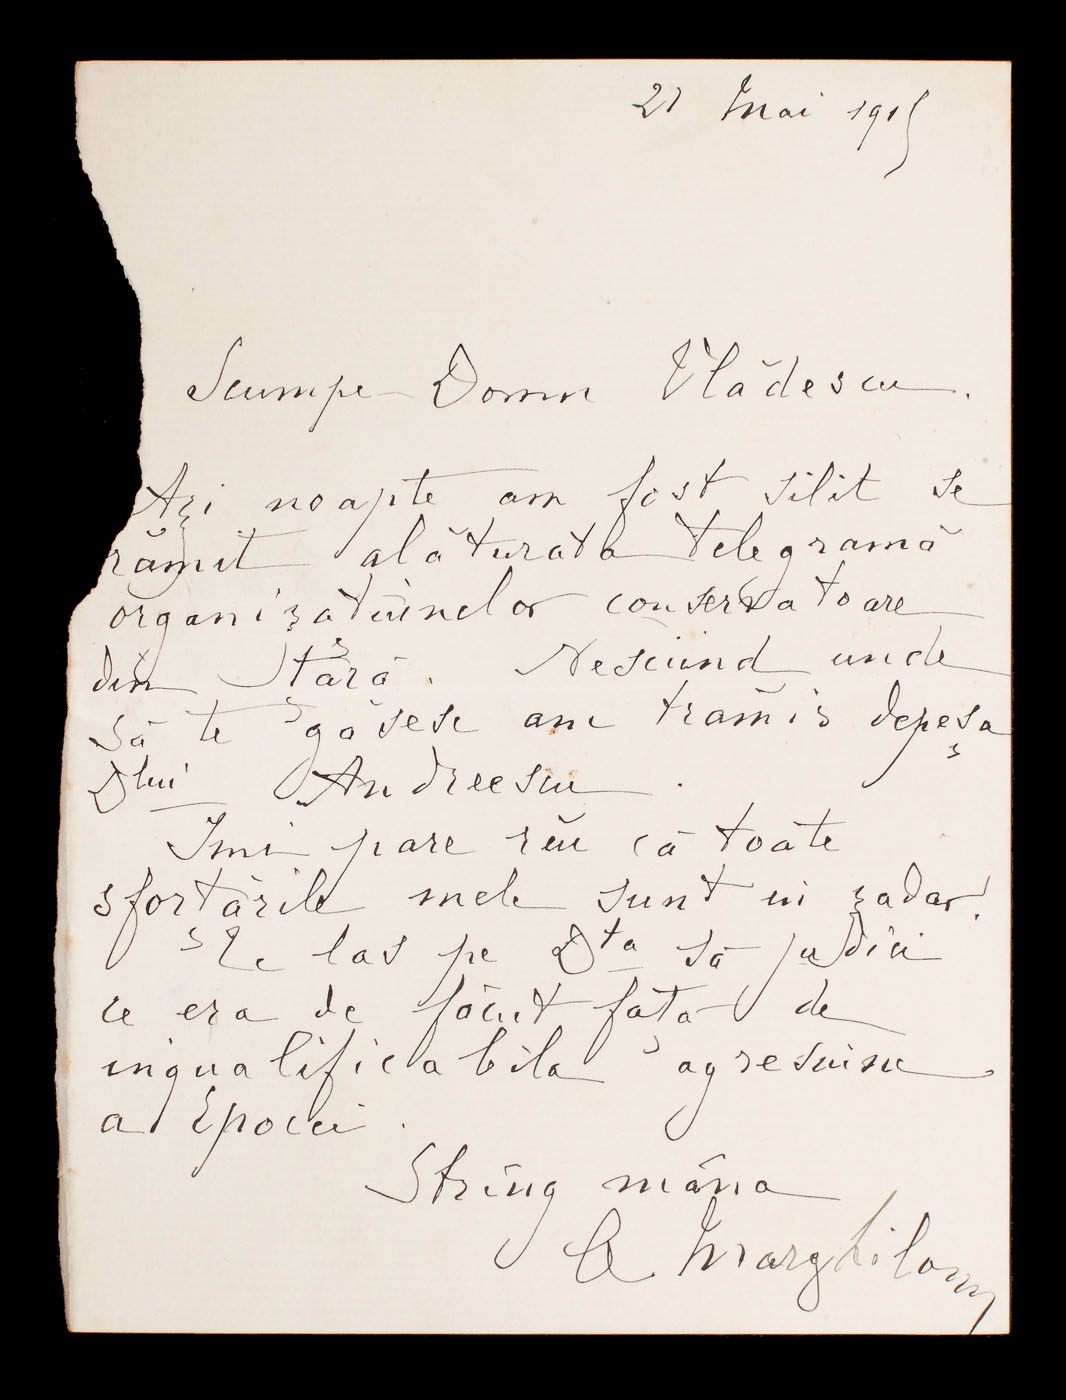 21 Mai 1915
Scumpe Domn Vlădescu.
Azi noapte am fost silit se
trămit alăturata telegramă
organizatiunelor conservatoare
din țară. Nesciind unde
să te găsesc am trămis depeșa
Dlui Andreescu.
Imi pare rĕu că toate
sforțările mele sunt in zadar.
Te las pe Dta să judici
ce era de făcut față de
inqualificabila agresiune
a Epocei.
String mâna
A Marghiloman